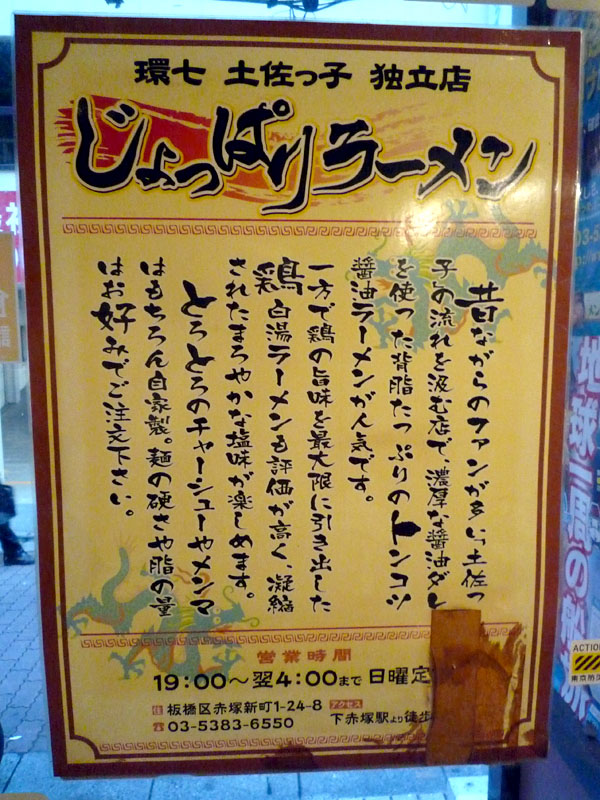 環七 土佐っ子 独立店
じょっぱりラーメン
昔ながらのファンが多い、土佐っ
子の流れを汲む店で、濃厚な醤油ダレ
を使った背脂たっぷりのトンコツ
醤油ラーメンが人気です。
一方で鶏の旨味を最大限に引き出した
鶏白湯ラーメンも評価が高く、凝縮
されたまろやかな塩味が楽しめます。
とろとろのチャーシューやメンマ
はもちろん自家製。麺の硬さや脂の量
はお好みでご注文下さい。
営業時間
19:00～翌4:00まで 日曜定
住 板橋区赤塚新町1-24-8 アクセス
☎ 03-5383-6550 下赤塚駅より徒歩
地球一周の
ACTION
東京防災